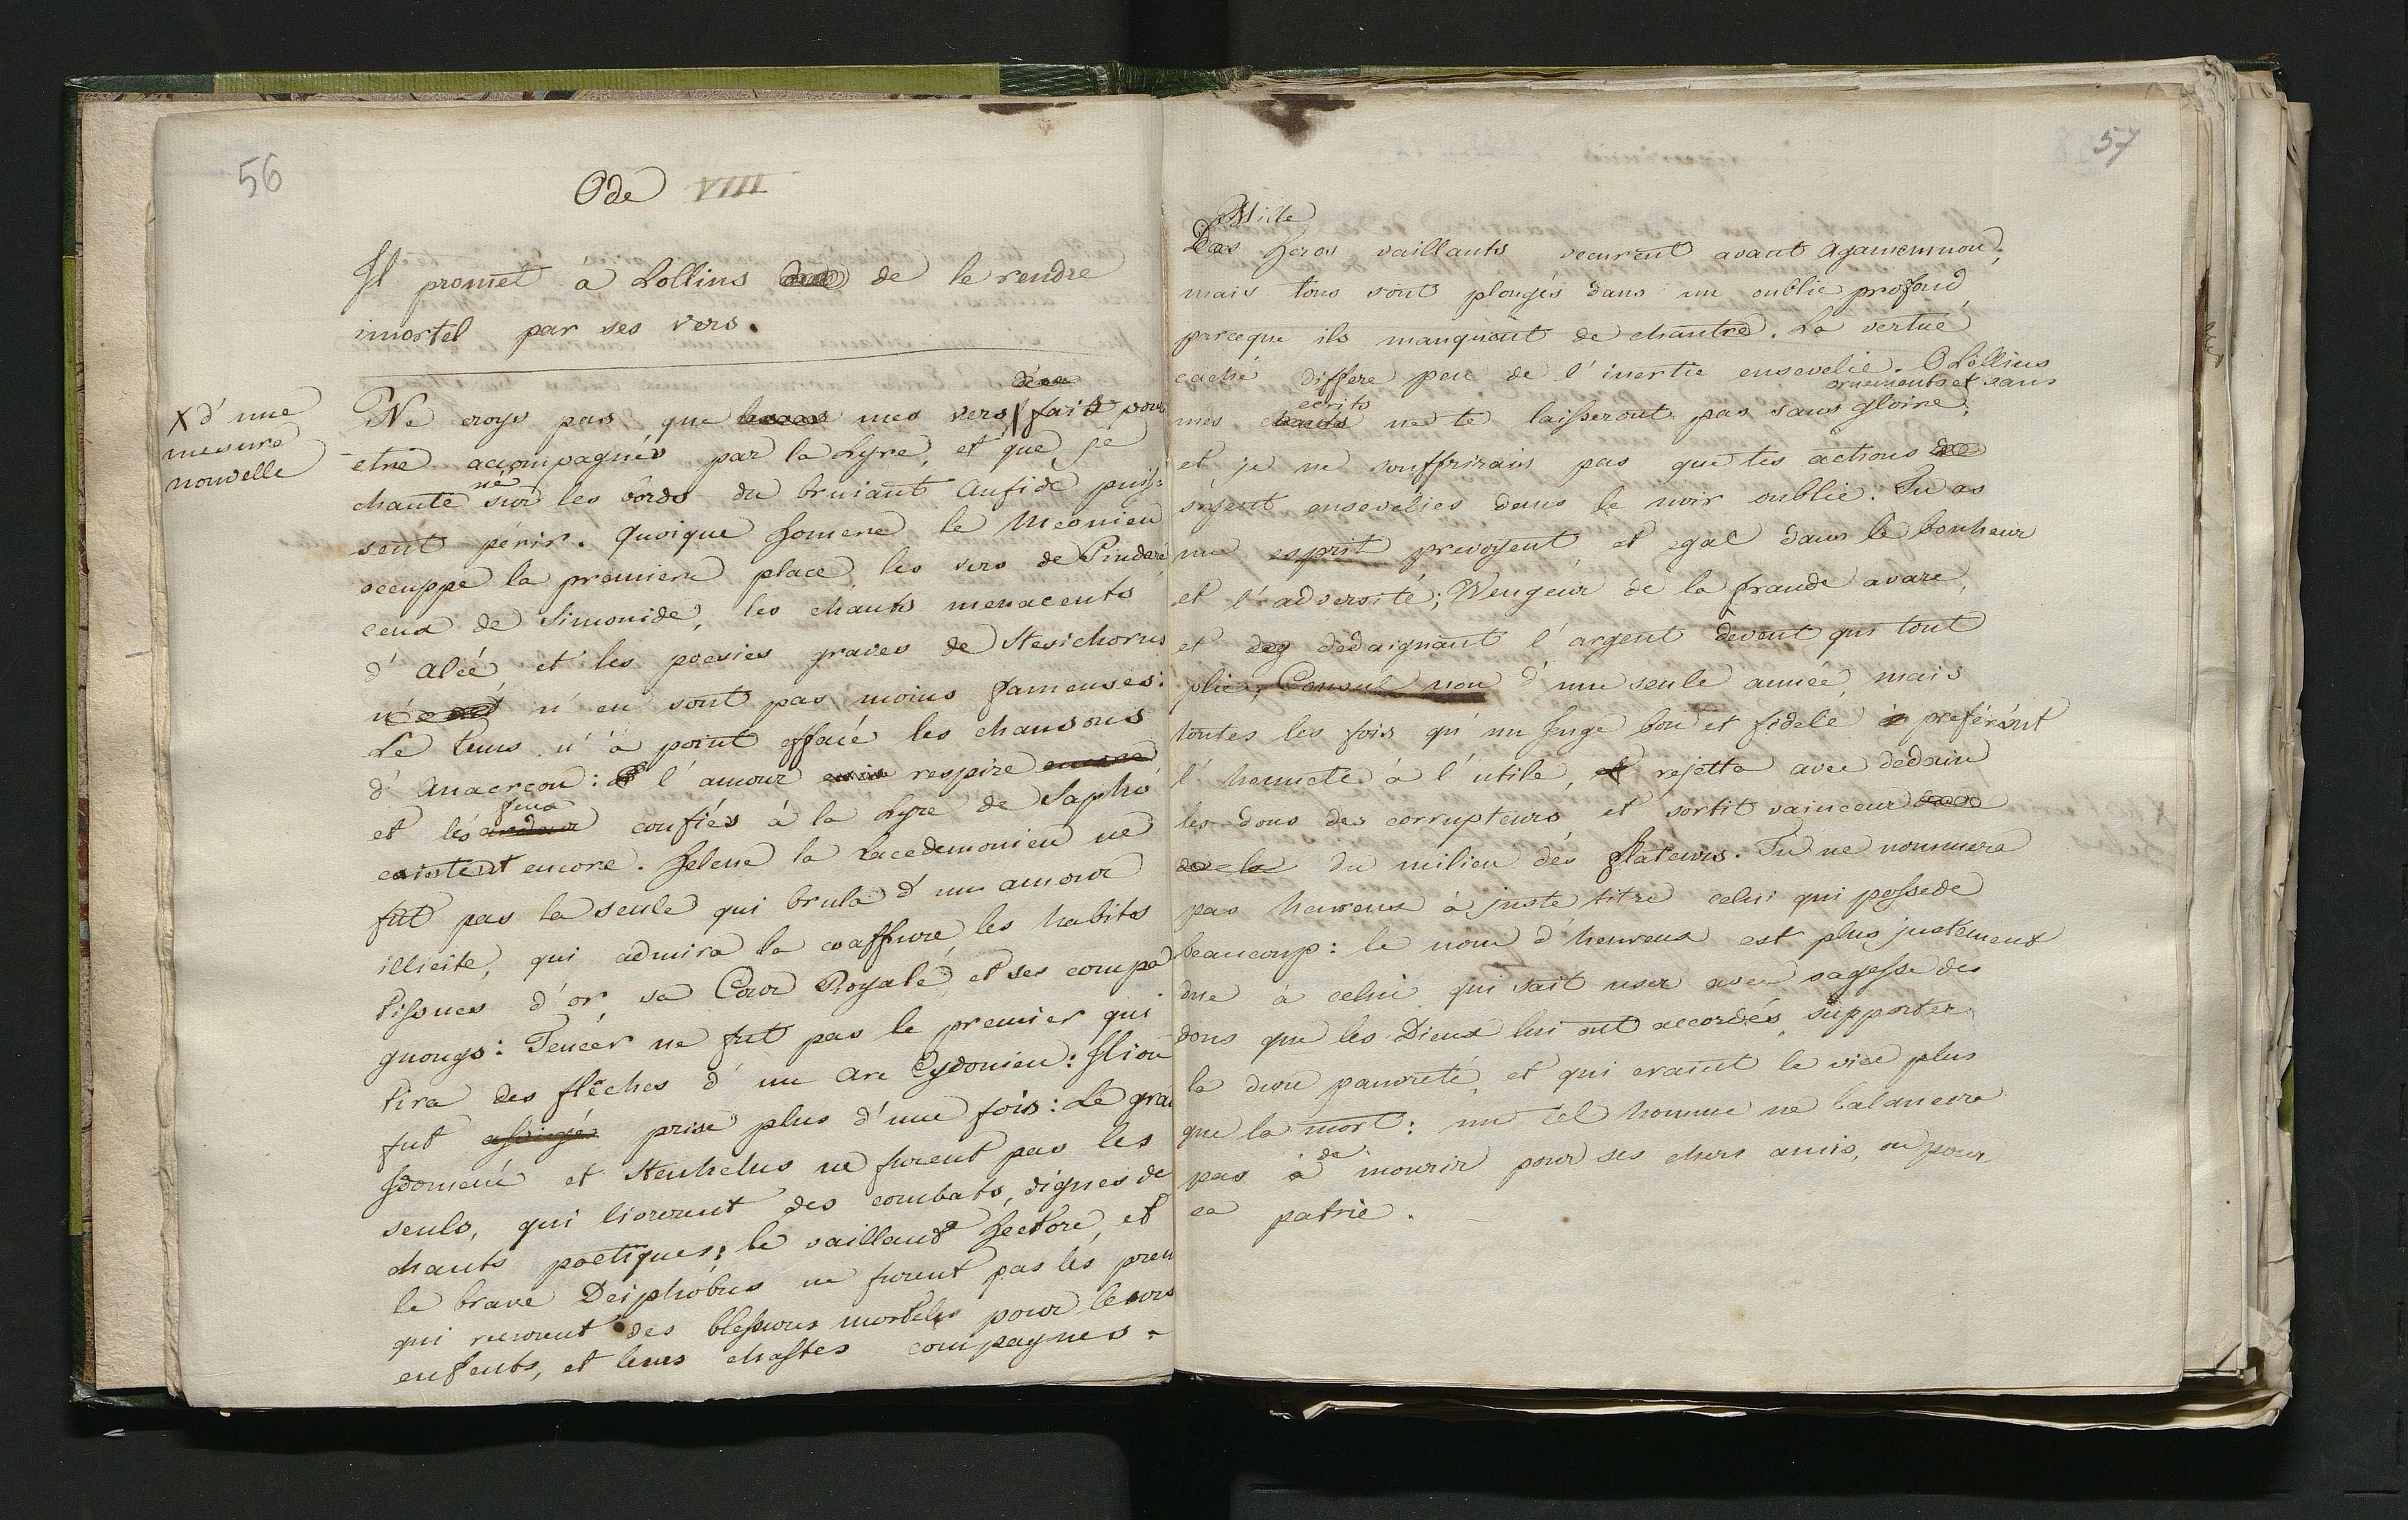 56
Ode VIII
Il promet à Lollius de le rendre
imortel par ses vers.
X d'une
mesure
nouvelle
Ne croys pas que mes vers X faits pour
etre accompagnés par la Lyre, et que je
chante né sur les bords du bruiant Aufide puis=
sent périr. Quoique Homere le Meonien
occuppe la premiere place, les vers de Pindare
ceux de Simonide, les chants menacents
d'Alcé, et les poesies graves de Stesichorus
n'en sont pas moins fameuses:
Le tems n'a point effacé les chansons
d'Anacreon: l'amour respire
et les feux confiés à la Lyre de Sapho
existent encore. Helene la Lacedemonien ne
fut pas la seule qui brula d'un amour
illicite, qui admira la coaffure, les habits
tissues d'or, sa Cour Royale, et ses compa
gnongs: Teucer ne fut pas le premier qui
tira des flêches d'un arc Cydonien: Ilion
fut assiegée prise plus d'une fois: Le gra
Idomené et Stenhelus ne furent pas les
seuls, qui livrerent des combats, dignes de
chants poëtiques; le vaillant Hectore, et
le brave Deiphobus ne furent pas les prem
qui recurent des blessures morteles pour leurs
enfents, et leurs chastes compagnes.
57
Mille
Des Heros vaillants vecurent avant Agamemnon;
mais tous sont plongés dans un oublie profond,
parceque ils manquent de chantre. La vertue
caché differe peu de l'inertie ensevelie. O Lollius
ornements et sans
mes chants ecrits ne te laisseront pas sans gloire;
et je ne souffrirais pas que tes actions
soyent ensevelies dans le noir oublie. Tu as
une esprit prevoyent, et egal dans le bonheur
et l'adversité; Wengeur de la fraude avare,
et deg dedaignant l'argent devent qui tout
plie, Consul non d'une seule année, mais
toutes les fois qu'un Juge bon et fidele à preférant
l'honnete à l'utile, et rejetta avec dedain
les dons des corrupteurs, et sortit vainceur
de la du milieu des flateurs. Tu ne nommera
pas heureux à juste titre celui qui possede
beaucoup: le nom d'heureux est plus justement
due à celui qui sait user avec sagesse des
dons que les Dieux lui ont accordés, supporter
la dure pauvreté, et qui craint le vice plus
que la mort: un tel homme ne balancera
pas à de mourir pour ses chers amis, ou pour
sa patrie.